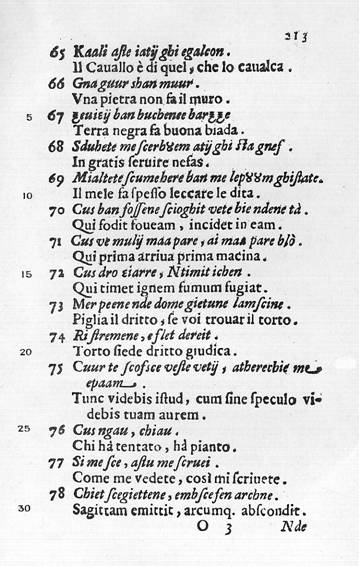 213
65 Kaali aſte iatÿ ghi egalcon.
Il Cauallo è di quel, che lo caualca.
66 Gna guur shan muur.
Vna pietra non fa il muro.
5 67 ban buchenee
Terra negra fa buona biada.
68 Sduhete me ſcerbȣem atÿ ghi ſſa gneſ.
In gratis ſeruire neſas.
69 Mialtete ſcumehere ban me lepȣȣm ghiſtate.
10 Il mele fa ſpeſſo leccare le dita.
70 Cus ban foſſene ſcioghit vete bie ndene tà.
Qui fodit foueam, incidet in eam.
71 Cus ve mulÿ maa pare, ai maa pare blò.
Qui prima arriua prima macina.
15 72 Cus dro εiarre, Ntimit ichen.
Qui timet ignem fumum fugiat.
73 Mer peene nde dome gietune lamſcine.
Piglia il dritto, ſe voi trouar il torto.
74 Ri ſtremene, e flet dereit.
20 Torto ſiede dritto giudica.
75 Cuur te ſcoſice veſte vetÿ, atherechie me
epaam
Tunc videbis iſtud, cum ſine ſpeculo vi-
debis tuam aurem.
25 76 Cus ngau, chiau.
Chi hà tentato, hà pianto.
77 Si me ſce, aſtu me ſcruei.
Come me vedete, così mi ſcriuete.
78 Chiet ſcegiettene, embſceſen archne.
30 Sagittam emittit, arcumq. abſcondit.
O 3 Nde